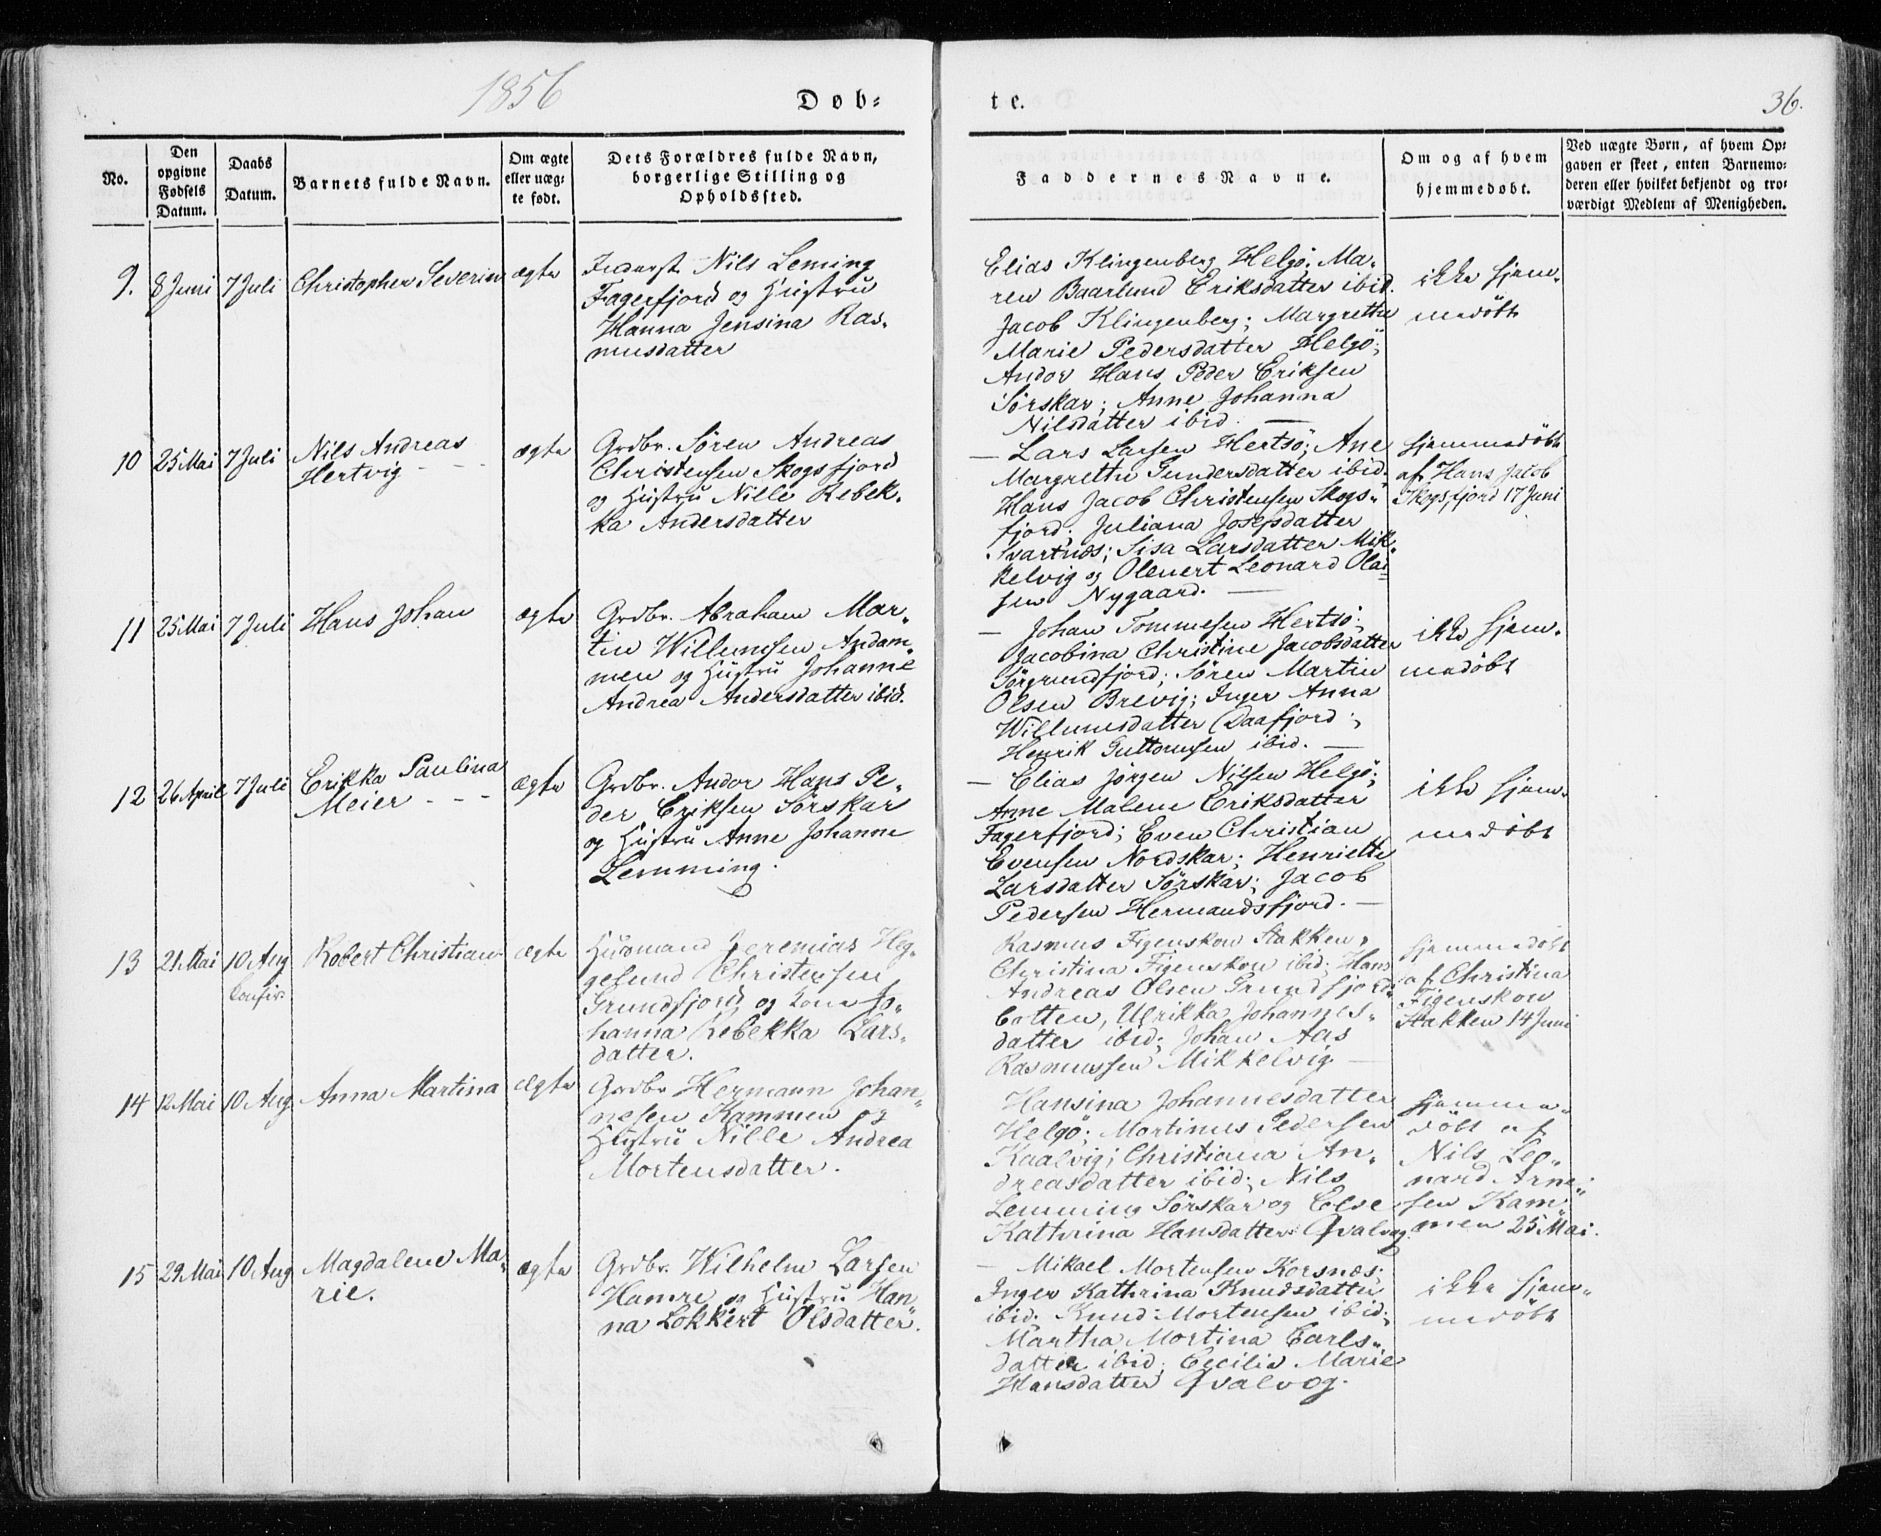 1856
Døb-
te.
36.
No.
Den
opgivne
Fødsels
Datum.
Daabs
Datum.
Barnets fulde Navn.
Om ægte
eller uæg-
te født.
Dets Forældres fulde Navn,
borgerlige Stilling og
Opholdssted.
Faddernes Navne.
Om og af hvem
hjemmedøbt.
Ved uægte Børn, af hvem Op-
gaven er skeet, enten Barnemo-
deren eller hvilket bekjendt og tro-
værdigt Medlem af Menigheden.
9. 8 Juni 7 Juli Christopher Severin ægte
Nils Leming
Fagerfjord og Hustru
Hanna Jensina Ras-
musdatter
Elias Klingenberg Helgø; Ma-
ren Baarlund Eriksdatter ibid.
Jacob Klingenberg; Margrethe
Marie Pedersdatter Helgö;
Andor Hans Peder Eriksen
Sörskar; Anne Johanna
Nilsdatter ibid. —
ikke hjem-
medøbt
10 25 Mai 7 Juli Nils Andreas
Hertvig - - -
ægte
Grdbr. Søren Andreas
Christensen Skogsfjord
og Hustru Nille Rebek-
ka Andersdatter
— Lars Larsen Hertsö; Ane
Margrethe Gundersdatter ibid.
Hans Jacob Christensen Skogs-
fjord; Juliana Josepsdatter
Svartnæs; Sisa Larsdatter Mik-
kelvig og Olenert Leonard Olai-
sen Nygaard. —
hjemmedøbt
af Hans Jacob
Skogsfjord 17 Juni
11 25 Mai 7 Juli Hans Johan ægte
Grdbr. Abraham Mar-
tin Willumsen Andam-
men og Hustru Johanne
Andrea Andersdatter ibid.
— Johan Tommesen Hertsö;
Jacobina Christine Jacobsdatter
Sörgrundfjord; Sören Martin
Olsen Brevig; Inger Anna
Willumsdatter Daafjord;
Henrik Guttormsen ibid. —
ikke hjem-
medøbt
12 26 April 7 Juli Erikka Paulina
Meier - - -
ægte
Grdbr. Andor Hans Pe-
der Eriksen Sörskar
og Hustru Anne Johanne
Lemming.
— Elias Jørgen Nilsen Helgö;
Anne Malene Eriksdatter
Fagerfjord; Even Christian
Evensen Nordskar; Henriette
Larsdatter Sörskar; Jacob
Pedersen Hermandsfjord. —
ikke hjem-
medøbt
13 21 Mai 10 Aug
Confir.
Robert Christian ægte
Husmand Jeremias Heg-
gelund Christensen
Grundfjord og Kone Jo-
hanna Rebekka Lars-
datter.
Rasmus Figenskou Stakken,
Christina Figenskou ibid; Hans
Andreas Olsen Grundfjord-
botten, Ulrikka Johannes-
datter ibid; Johan Aas
Rasmussen Mikkelvig —
hjemmedøbt
af Christina
Figenskou
Stakken 14 Juni
14 12 Mai 10 Aug Anna Martina ægte
Grdbr. Hermann Johan-
nesen Kammen og
Hustru Nille Andrea
Mortensdatter.
Hansina Johannesdatter
Helgö; Mortinus Pedersen
Kaalvig; Christiana An-
dreasdatter ibid; Nils
Lemming Sörskar og Else
Kathrina Hansdatter Qvalvog.
hjemme-
døbt af
Nils Leo-
nard Arne-
sen Kam-
men 25 Mai.
15 29 Mai 10 Aug Magdalene Ma-
rie.
ægte
Grdbr. Wilhelm Larsen
Hamre og Hustru Han-
na Lokkert Olsdatter.
— Mikael Mortensen Korsnæs;
Inger Kathrina Knudsdatter
ibid. Knud Mortensen ibid;
Martha Mortina Carls-
datter ibid; Cecilie Marie
Hansdatter Qvalvog.
ikke hjem-
medøbt